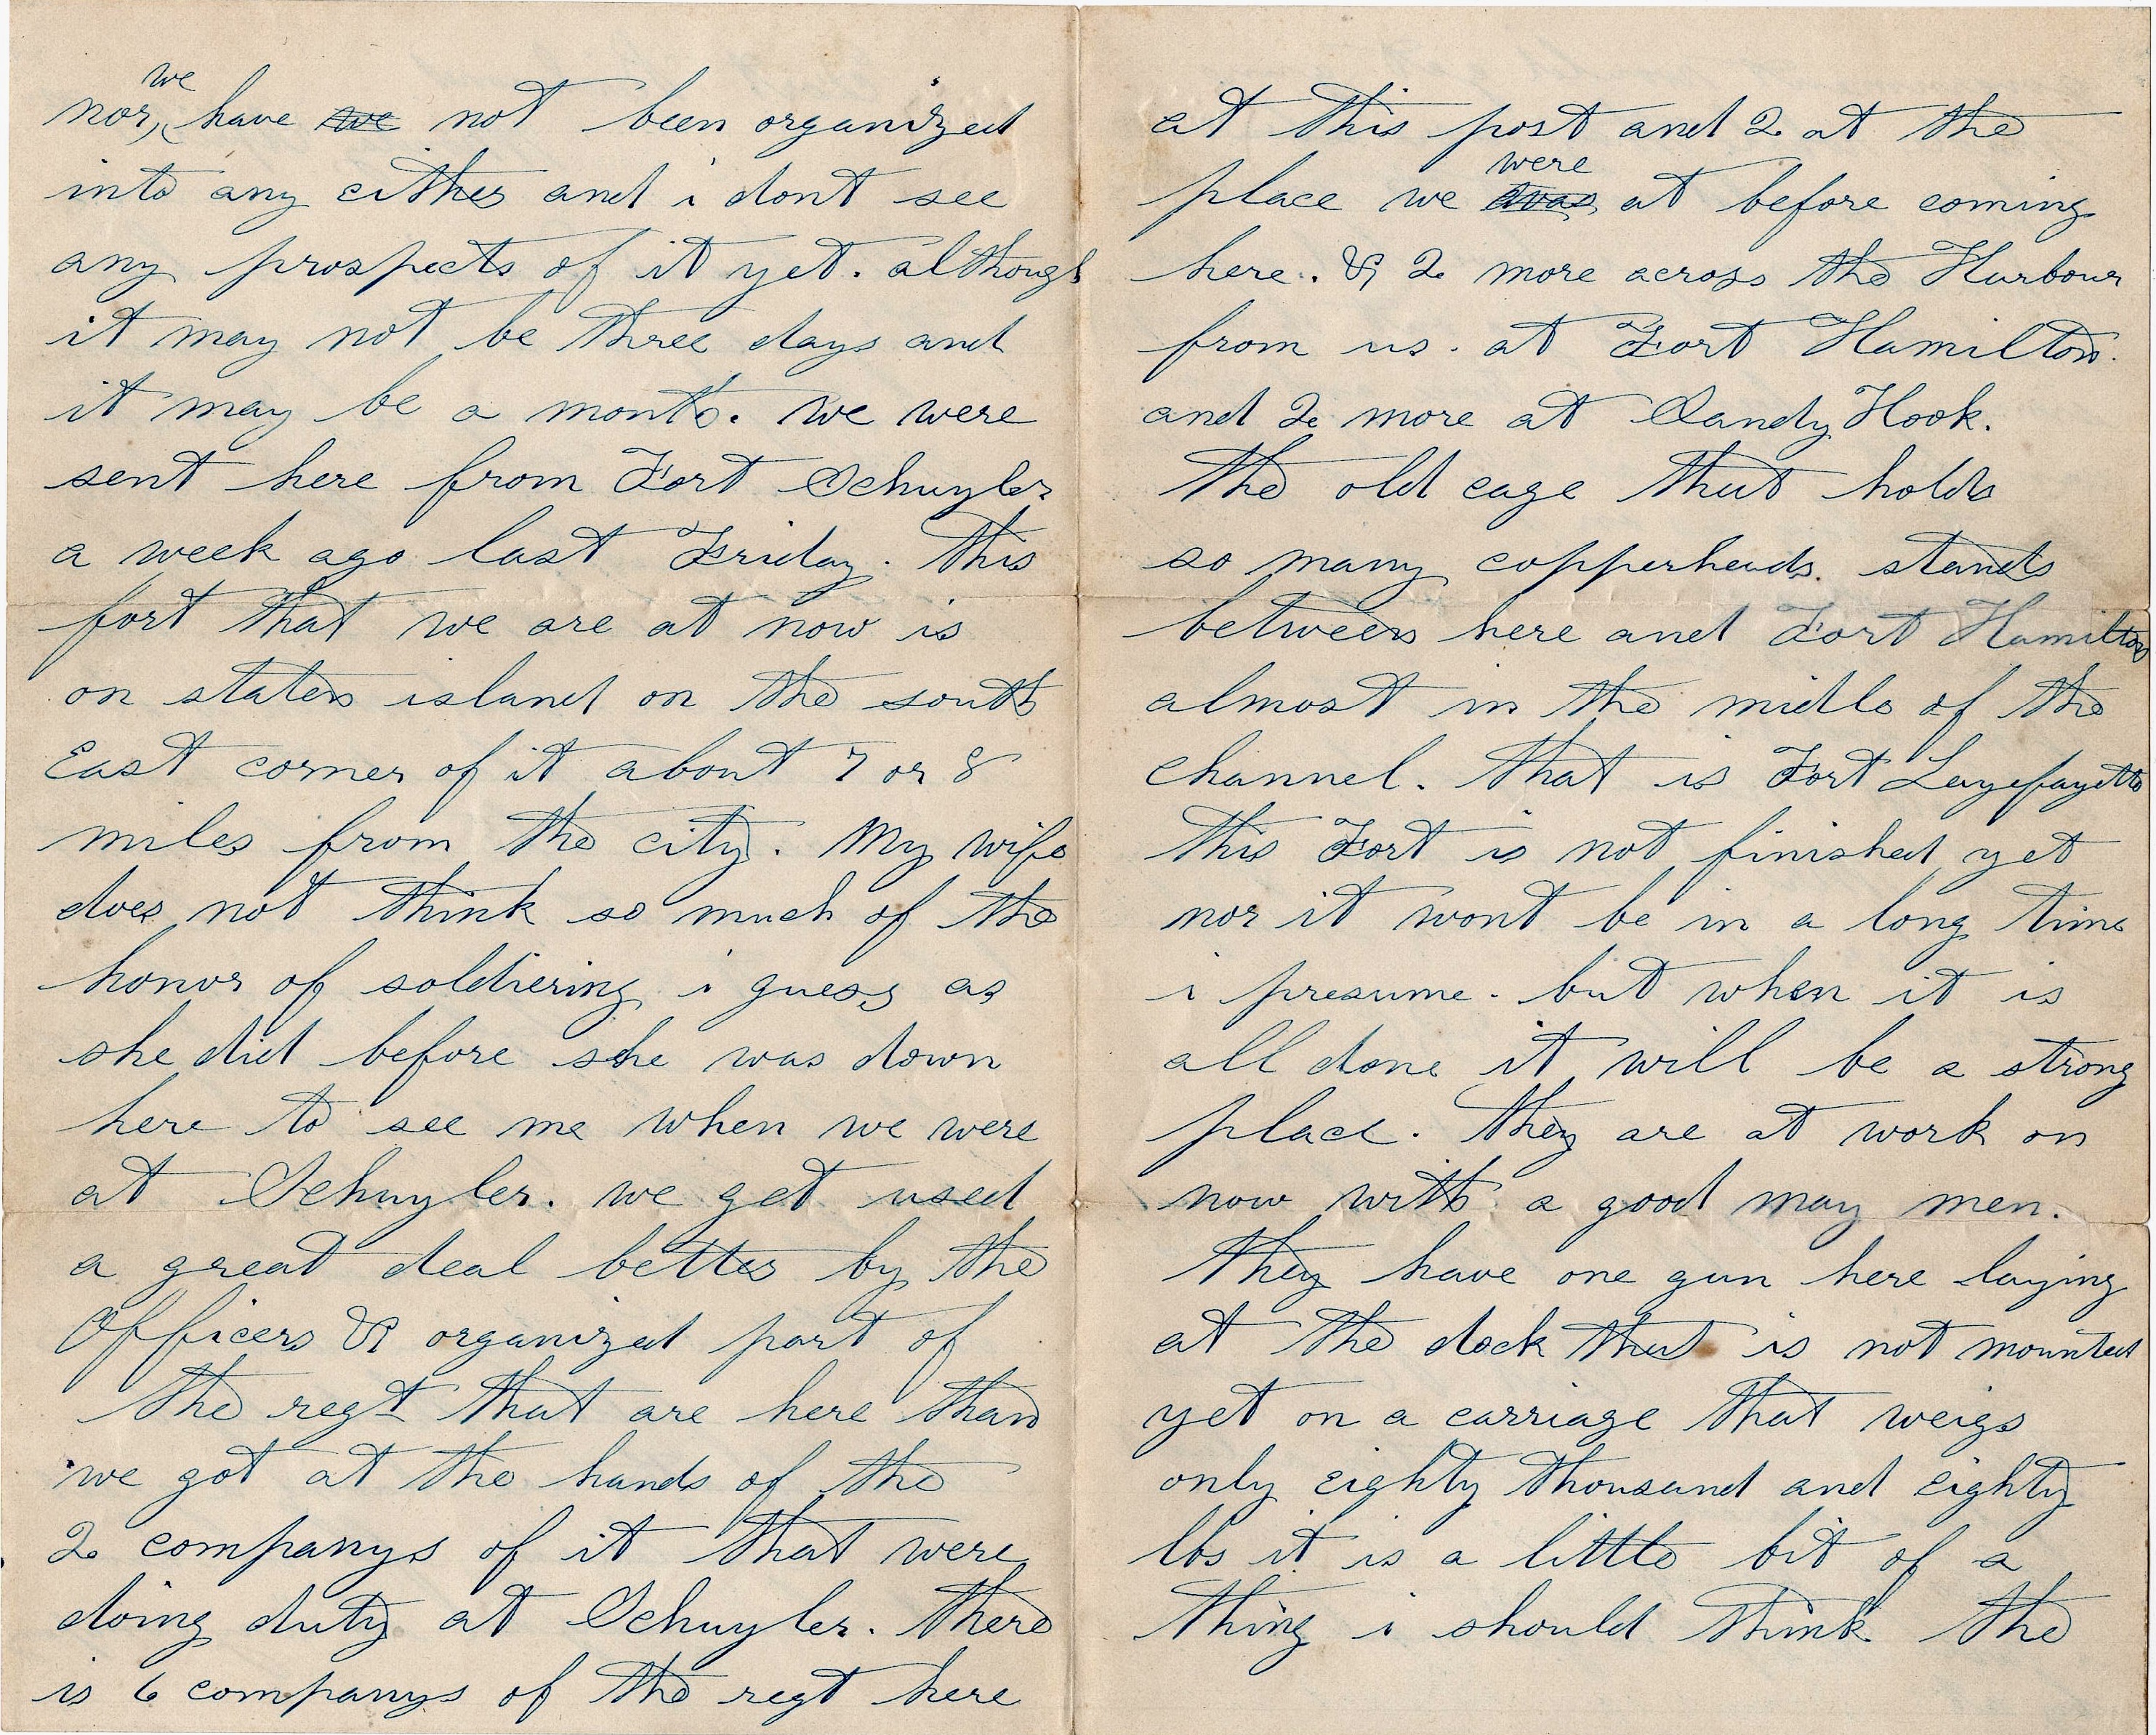 nor, we have we not been organized
into any either and i dont see
any prospects of it yet. although
it may not be three days and
it may be a month. we were
sent here from Fort Schuyler
a week ago last Friday. this
fort that we are at now is
on staten island on the south
East corner of it about 7 or 8
miles from the city. My wife
does not think so much of the
honor of soldiering i guess as
she did before she was down
here to see me when we were
at Schuyler. we get used
a great deal better by the
Officers & organized part of
the regt that are here than
we got at the hands of the
2 companys of it that were
doing duty at Schuyler. there
is 6 companys of the regt here
at this post and 2 at the
place we was were at before coming
here. & 2 more across the Harbour
from us. at Fort Hamilton.
and 2 more at Sandy Hook.
the old cage that holds
so many copperheads. stands
between here and Fort Hamilton
almost in the midle of the
channel. that is Fort Layefayette
this Fort is not finished yet
nor it wont be in a long time
i presume. but when it is
all done it will be a strong
place. they are at work on
now with a good may men.
they have one gun here laying
at the dock that is not mounted
yet on a carriage that weigs
only eighty thousand and eighty
lbs it is a little bit of a
thing i should think the